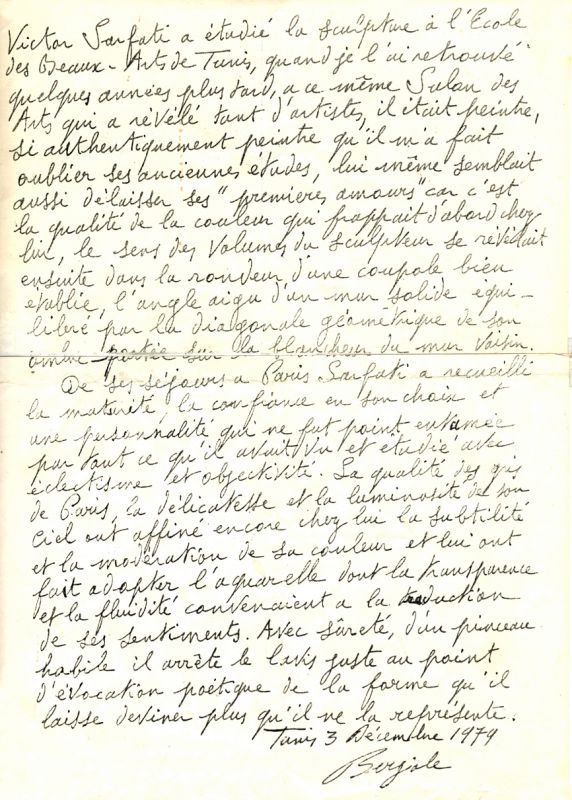 Victor Sarfati a étudié la sculpture à l'École
des Beaux-Arts de Tunis, quand je l'ai retrouvé
quelques années plus tard, a ce même Salon des
Arts qui a révélé tant d'artistes, il était peintre,
si authentiquement peintre qu'il m'a fait
oublier ses anciennes études, lui même semblait
aussi délaisser ses "premières amours" car c'est
la qualité de la couleur qui frappait d'abord chez
lui, le sens des volumes du sculpteur se révélait
ensuite dans la rondeur d'une coupole bien
établie, l'angle aigu d'un mur solide équi-
libré par la diagonale géométrique de son
ombre portée sur la blancheur du mur voisin.
De ses séjours a Paris Sarfati a recueilli
la maturité, la confiance en son choix et
une personnalité qui ne fut point entamée
par tout ce qu'il avait vu et étudié avec
éclectisme et objectivité. La qualité des gris
de Paris, la délicatesse et la luminosité de son
Ciel ont affiné encore chez lui la subtilité
et la modération de sa couleur et lui ont
fait adopter l'aquarelle dont la transparence
et la fluidité convenaient a la traduction
de ses sentiments. Avec sûreté, d'un pinceau
habile il arrête le lavis juste au point
d'évocation poétique de la forme qu'il
laisse deviner plus qu'il ne la représente.
Tunis 3 Décembre 1979